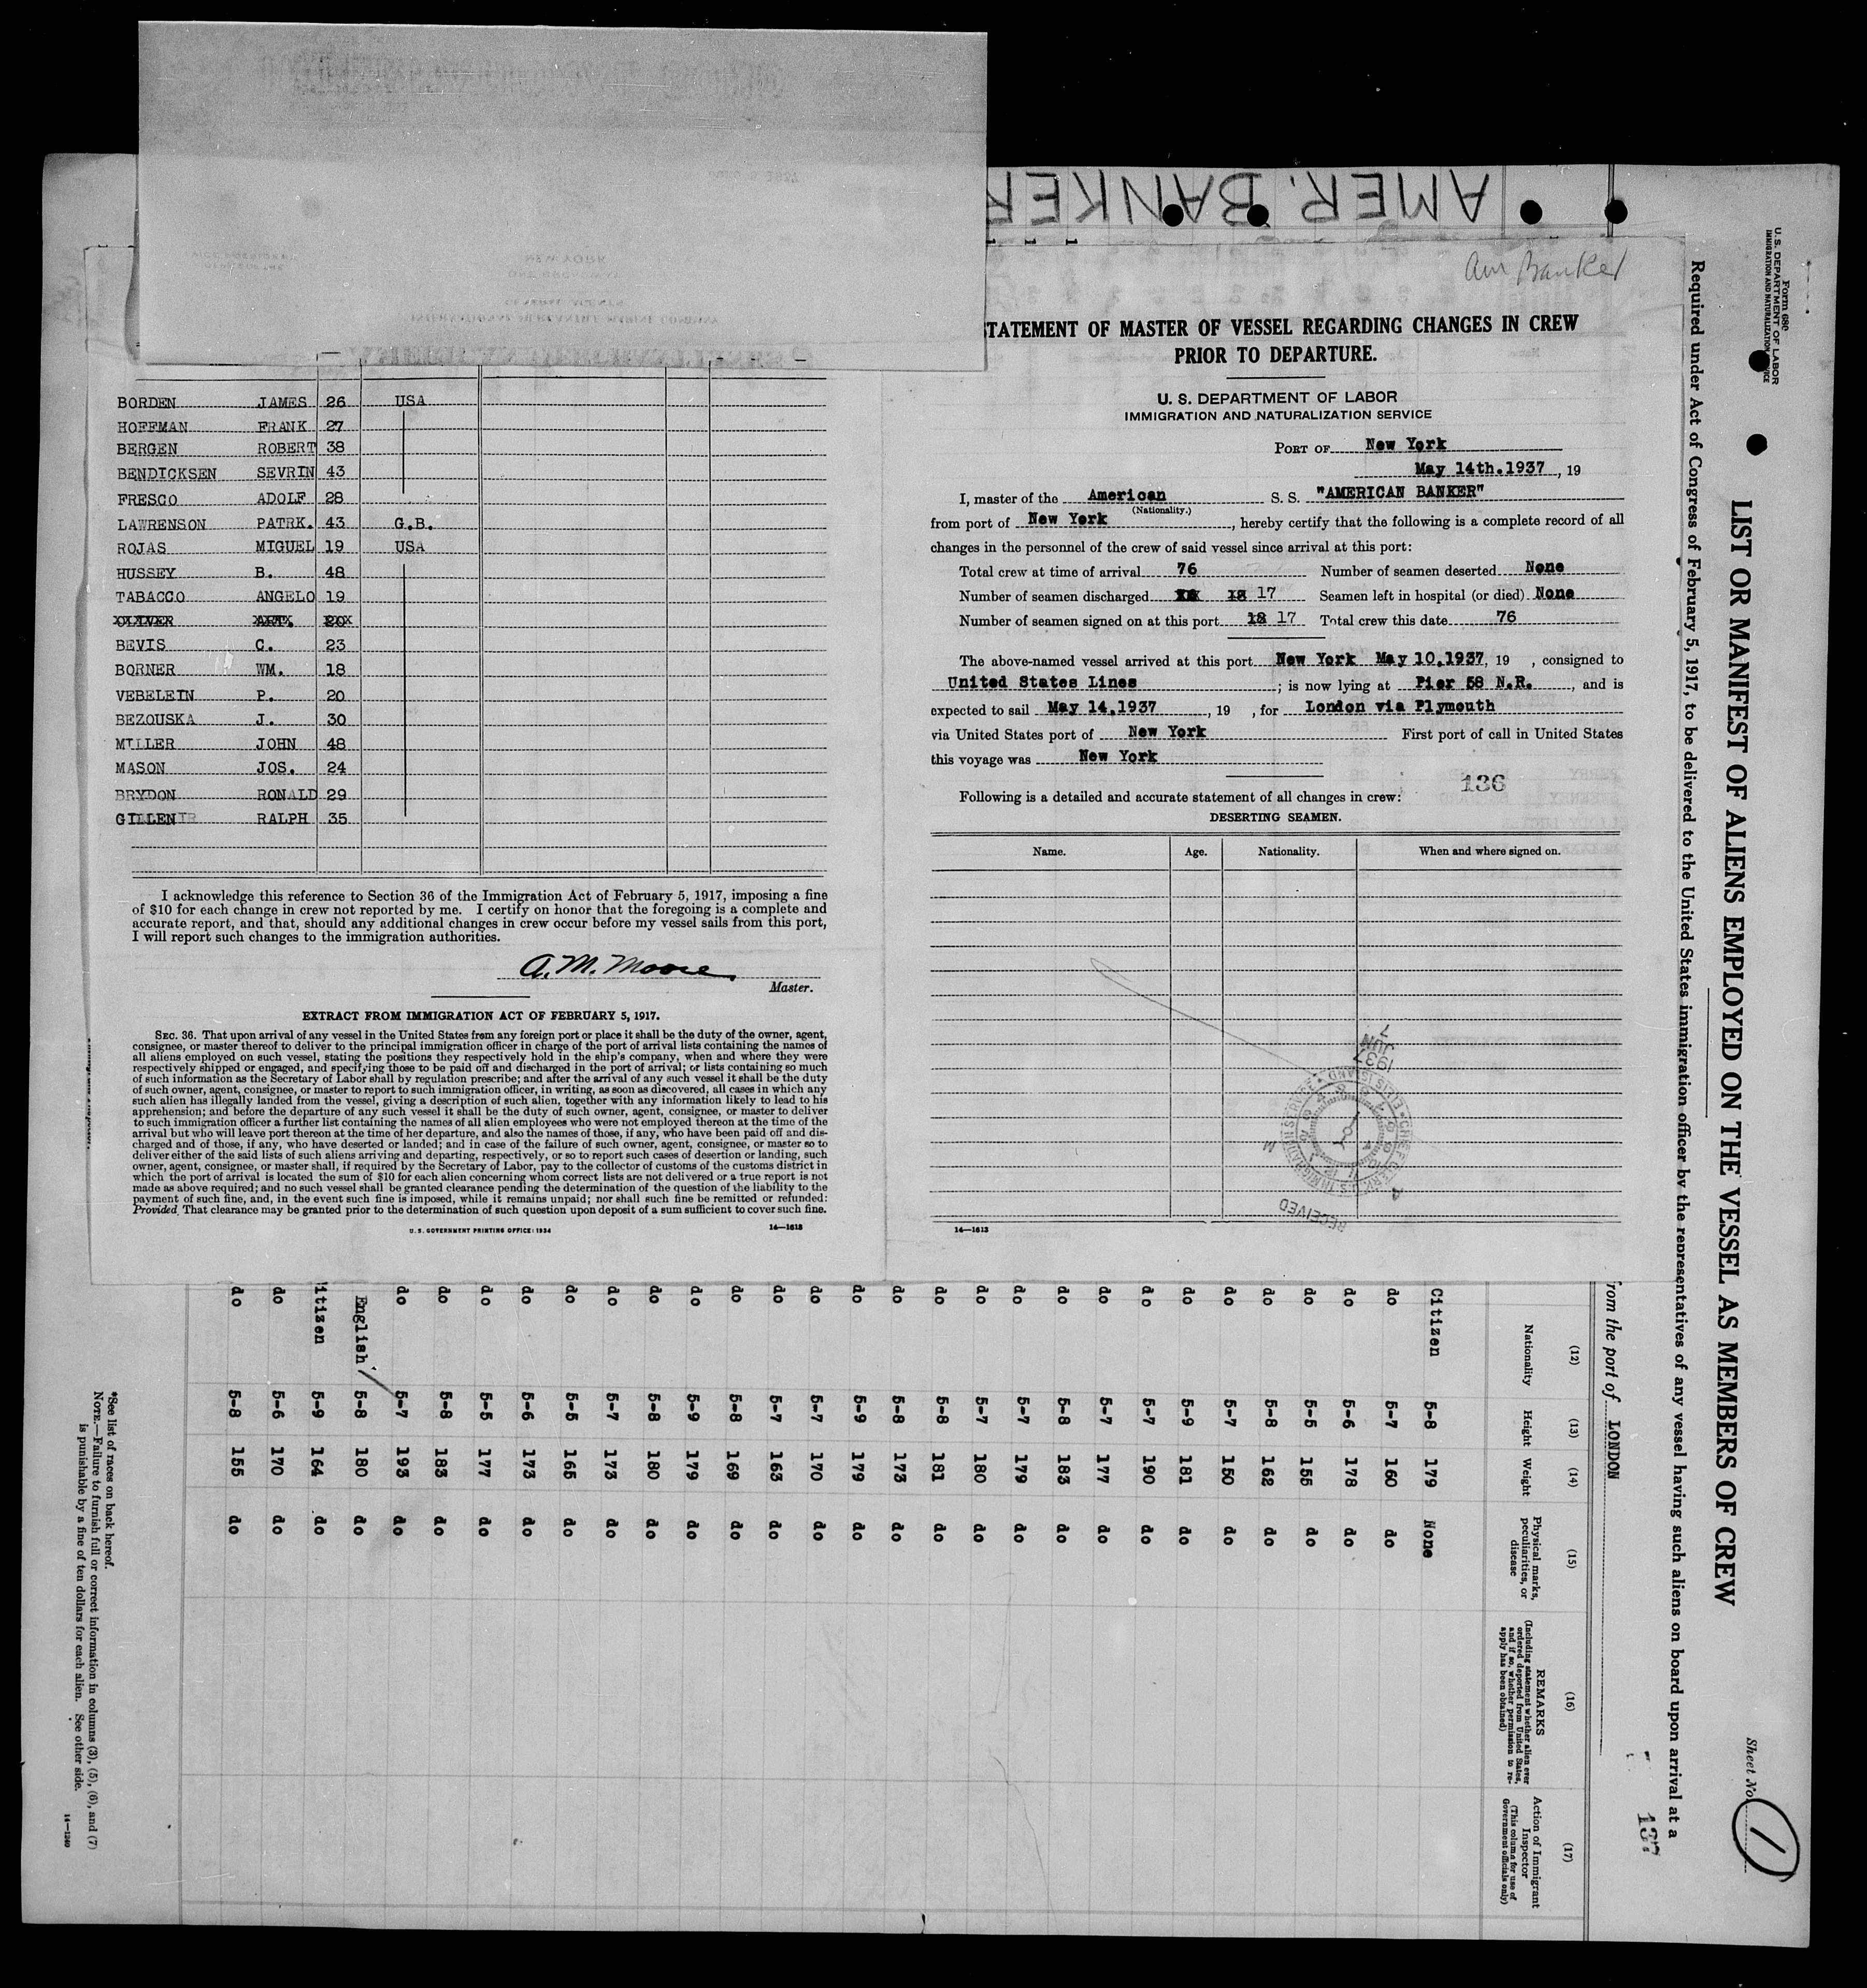 AMER. BANKER
Am Banker
STATEMENT OF MASTER OF VESSEL REGARDING CHANGES IN CREW
PRIOR TO DEPARTURE.
U. S. DEPARTMENT OF LABOR
IMMIGRATION AND NATURALIZATION SERVICE
PORT OF New York
May 14th.1937, 19
I, master of the American S. S. "AMERICAN BANKER"
(Nationality.)
from port of New York, hereby certify that the following is a complete record of all
changes in the personnel of the crew of said vessel since arrival at this port:
Total crew at time of arrival 76 Number of seamen deserted None
Number of seamen discharged 18 17 Seamen left in hospital (or died) None
Number of seamen signed on at this port 18 17 Total crew this date 76
The above-named vessel arrived at this port New York May 10,1937, 19 , consigned to
United States Lines ; is now lying at Pier 58 N.R. , and is
expected to sail May 14,1937 , 19 , for London via Plymouth
via United States port of New York First port of call in United States
this voyage was New York
136
Following is a detailed and accurate statement of all changes in crew:
DESERTING SEAMEN.
Name. Age. Nationality. When and where signed on.
RECEIVED
1937 JUN 7
14—1613
BORDEN JAMES 26 USA
HOFFMAN FRANK 27
BERGEN ROBERT 38
BENDICKSEN SEVRIN 43
FRESCO ADOLF 28
LAWRENSON PATRK. 43 G.B.
ROJAS MIGUEL 19 USA
HUSSEY B. 48
TABACCO ANGELO 19
BEVIS C. 23
BORNER WM. 18
VEBELEIN P. 20
BEZOUSKA J. 30
MILLER JOHN 48
MASON JOS. 24
BRYDON RONALD 29
GILLEN RALPH 35
I acknowledge this reference to Section 36 of the Immigration Act of February 5, 1917, imposing a fine
of $10 for each change in crew not reported by me. I certify on honor that the foregoing is a complete and
accurate report, and that, should any additional changes in crew occur before my vessel sails from this port,
I will report such changes to the immigration authorities.
A. M. Moore.
Master.
EXTRACT FROM IMMIGRATION ACT OF FEBRUARY 5, 1917.
SEC. 36. That upon arrival of any vessel in the United States from any foreign port or place it shall be the duty of the owner, agent,
consignee, or master thereof to deliver to the principal immigration officer in charge of the port of arrival lists containing the names of
all aliens employed on such vessel, stating the positions they respectively hold in the ship's company, when and where they were
respectively shipped or engaged, and specifying those to be paid off and discharged in the port of arrival; or lists containing so much
of such information as the Secretary of Labor shall by regulation prescribe; and after the arrival of any such vessel it shall be the duty
of such owner, agent, consignee, or master to report to such immigration officer, in writing, as soon as discovered, all cases in which any
such alien has illegally landed from the vessel, giving a description of such alien, together with any information likely to lead to his
apprehension; and before the departure of any such vessel it shall be the duty of such owner, agent, consignee, or master to deliver
to such immigration officer a further list containing the names of all alien employees who were not employed thereon at the time of the
arrival but who will leave port thereon at the time of her departure, and also the names of those, if any, who have been paid off and dis-
charged and of those, if any, who have deserted or landed; and in case of the failure of such owner, agent, consignee, or master so to
deliver either of the said lists of such aliens arriving and departing, respectively, or so to report such cases of desertion or landing, such
owner, agent, consignee, or master shall, if required by the Secretary of Labor, pay to the collector of customs of the customs district in
which the port of arrival is located the sum of $10 for each alien concerning whom correct lists are not delivered or a true report is not
made as above required; and no such vessel shall be granted clearance pending the determination of the question of the liability to the
payment of such fine, and, in the event such fine is imposed, while it remains unpaid; nor shall such fine be remitted or refunded:
Provided, That clearance may be granted prior to the determination of such question upon deposit of a sum sufficient to cover such fine.
U. S. GOVERNMENT PRINTING OFFICE: 1934 14—1613
Form 680
U. S. DEPARTMENT OF LABOR
IMMIGRATION AND NATURALIZATION SERVICE
Sheet No. 1
LIST OR MANIFEST OF ALIENS EMPLOYED ON THE VESSEL AS MEMBERS OF CREW
Required under Act of Congress of February 5, 1917, to be delivered to the United States immigration officer by the representatives of any vessel having such aliens on board upon arrival at a
137
from the port of LONDON
(12) (13) (14) (15) (16) (17)
Nationality Height Weight Physical marks, peculiarities, or disease REMARKS (Including statement whether alien ever ordered deported from United States, and if so, whether permission to re-apply has been obtained) Action of Immigrant Inspector (This column for use of Government officials only)
Citizen 5-8 179 None
do 5-7 160 do
do 5-6 178 do
do 5-5 155 do
do 5-8 162 do
do 5-7 150 do
do 5-9 181 do
do 5-7 190 do
do 5-7 177 do
do 5-8 183 do
do 5-7 179 do
do 5-7 180 do
do 5-8 181 do
do 5-8 173 do
do 5-9 179 do
do 5-7 170 do
do 5-7 163 do
do 5-8 169 do
do 5-9 179 do
do 5-8 180 do
do 5-7 173 do
do 5-5 165 do
do 5-6 173 do
do 5-5 177 do
do 5-8 183 do
do 5-7 193 do
English 5-8 180 do
itizen 5-9 164 do
do 5-6 170 do
do 5-8 155 do
*See list of races on back hereof.
NOTE.—Failure to furnish full or correct information in columns (3), (5), (6), and (7)
is punishable by a fine of ten dollars for each alien. See other side.
14—1240